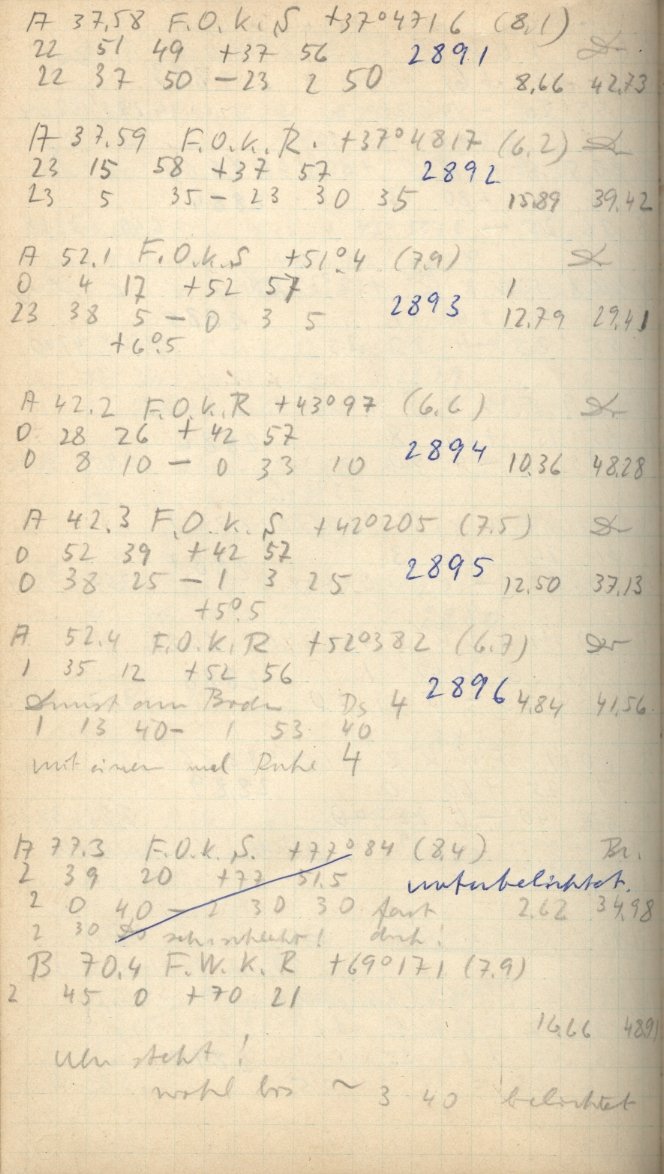 A 37.58 F.O.K.S +37°4716 (8,1)
22 51 49 +37 56 2891
22 37 50 – 23 2 50 8,66 42,73
A 37.59 F.O.K.R. +37°4817 (6,2)
23 15 58 +37 57 2892
23 5 35 – 23 30 35 15,89 39,42
A 52.1 F.O.K.S +51°4 (7.9)
0 4 17 +52 57
23 38 5 – 0 3 5 2893 12,79 29,41
+6°.5
A 42.2 F.O.K.R +43°97 (6.6)
0 28 26 +42 57
0 8 10 – 0 33 10 2894 10,36 48,28
A 42.3 F.O.K.S +42°205 (7.5)
0 52 39 +42 57
0 38 25 – 1 3 25 2895 12,50 37,13
+5°.5
A 52.4 F.O.K.R +52°382 (6.7)
1 35 12 +52 56
Dunst am Boden Ds 4 2896 4,84 41,56
1 13 40 – 1 53 40
mit einem mal Ruhe 4
A 77.3 F.O.K.S. +77°84 (8.4) Br.
2 39 20 +77 51.5 unterbelichtet.
2 0 40 – 2 30 30 fast 2,62 34,98
2 30 sehr schlecht! dich!
B 70.4 F.W.K.R +69°171 (7.9)
2 45 0 +70 21
16,66 48,91
Uhr steht!
wohl bis ~ 3 40 belichtet